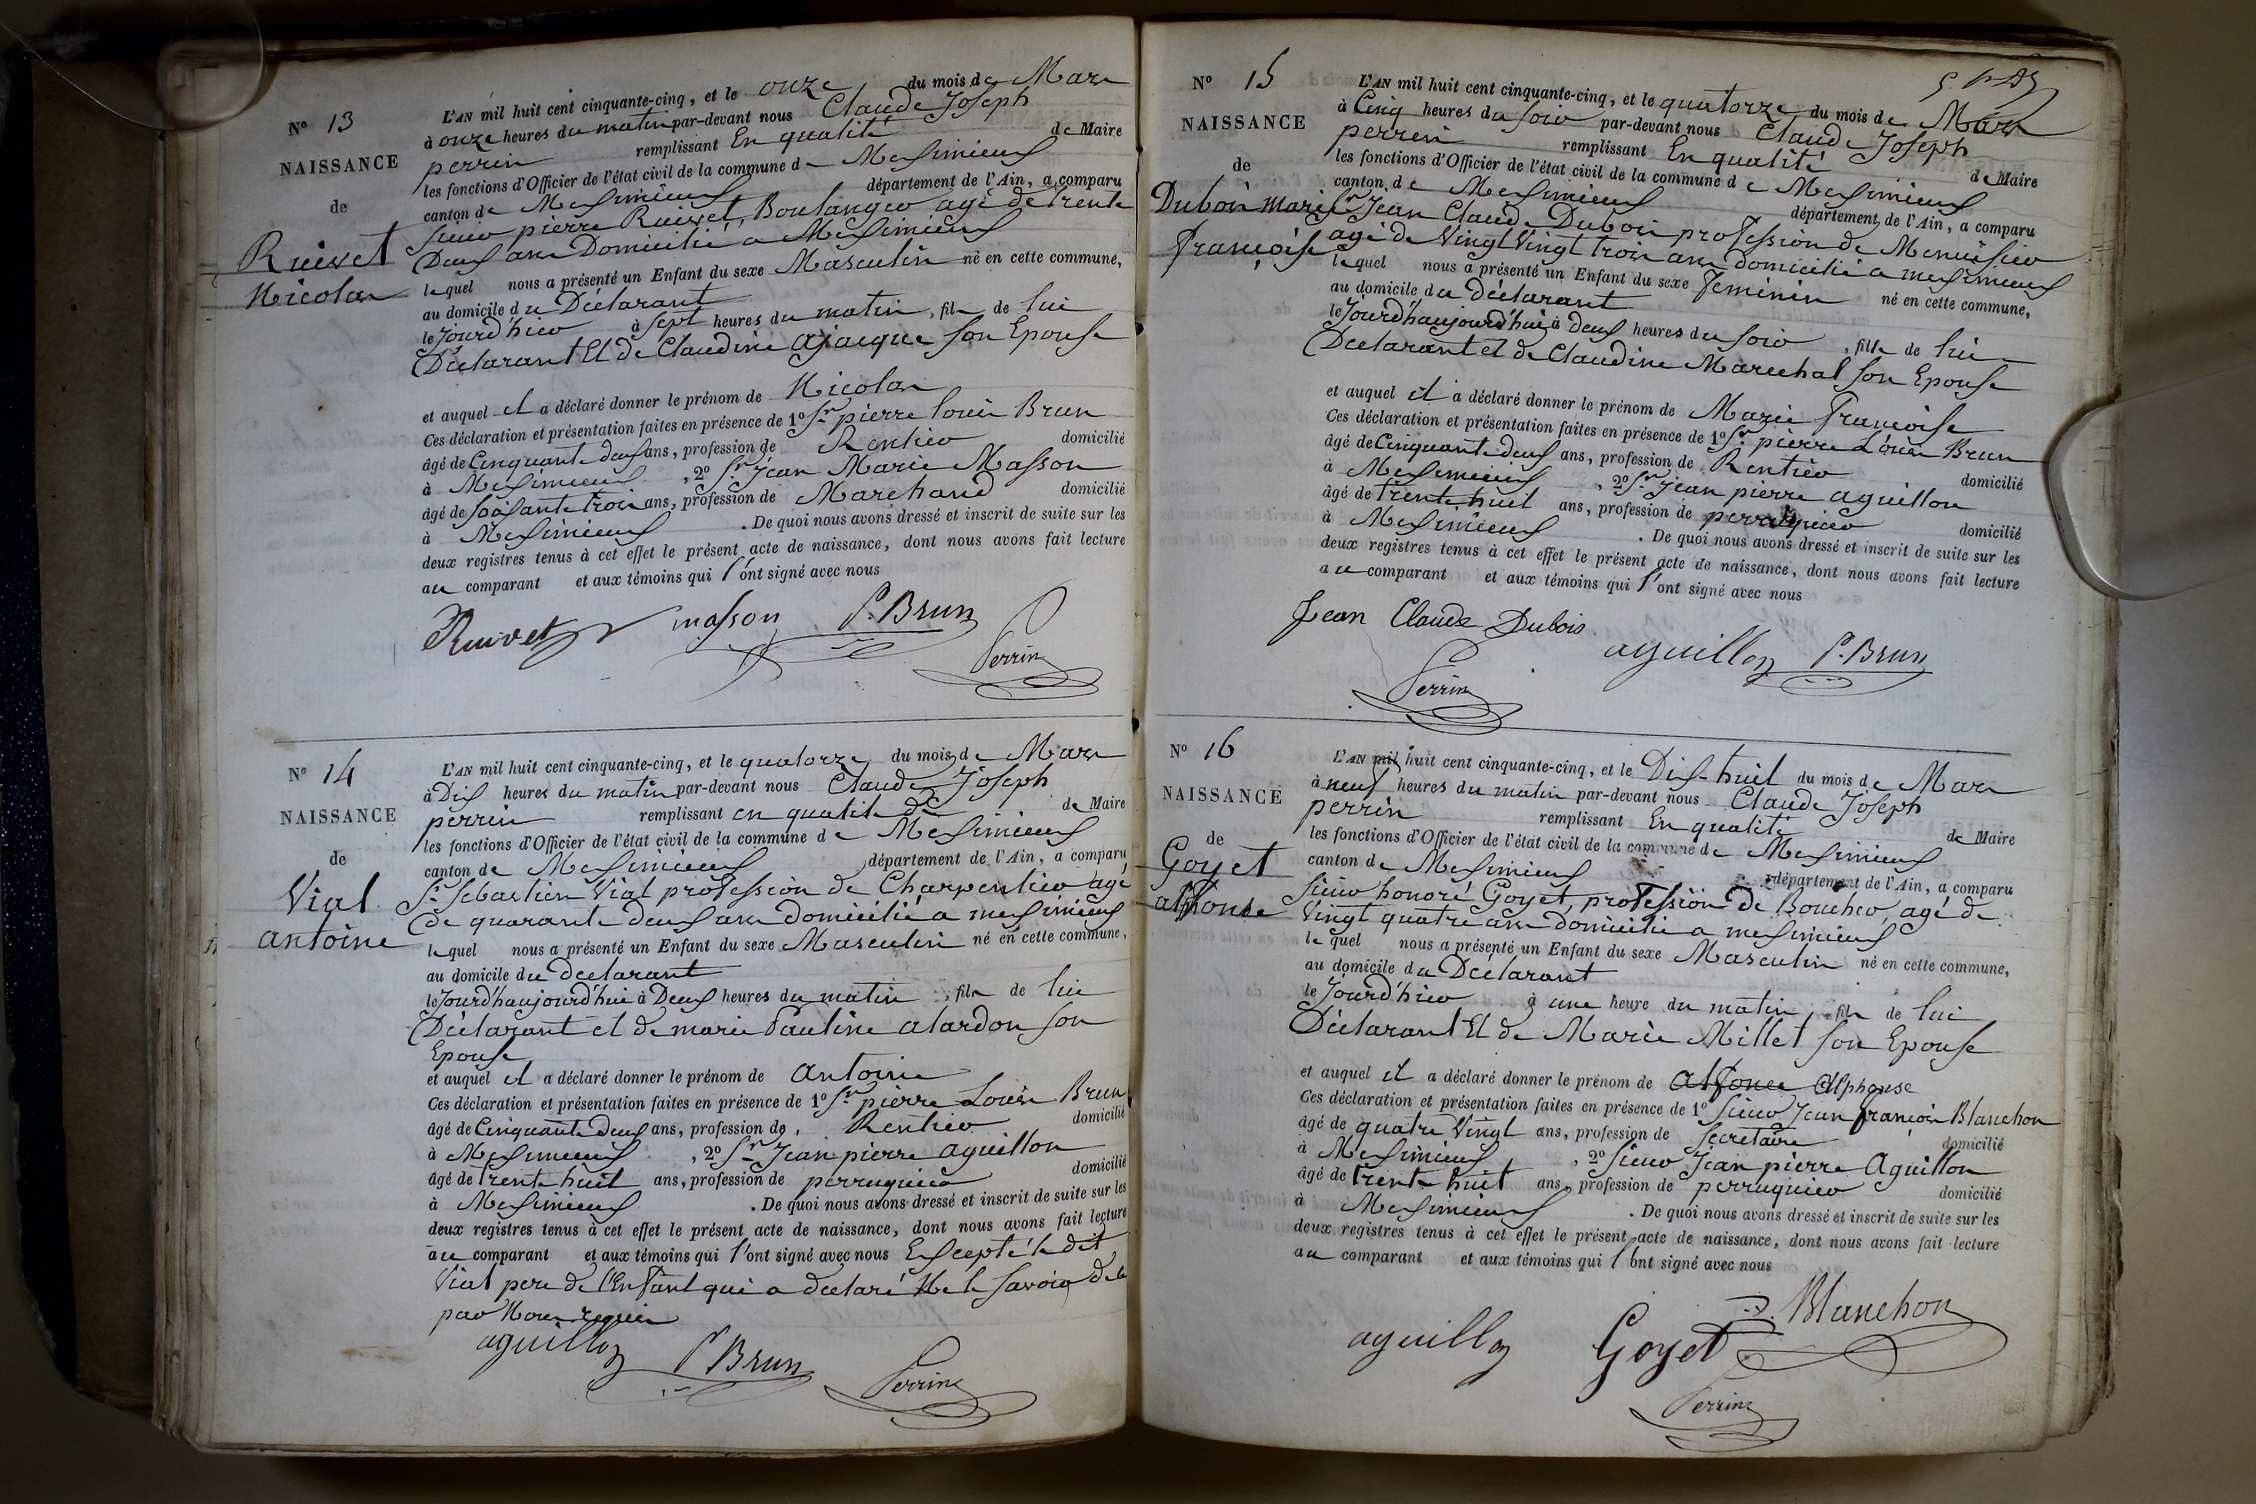 N° 13
NAISSANCE
de
Ruivet
Nicolas
L'AN mil huit cent cinquante-cinq, et le onze du mois de Mars
à onze heures du matin par-devant nous Claude Joseph
perrin remplissant En qualité de Maire
les fonctions d'Officier de l'état civil de la commune de Meximieux
canton de Meximieux département de l'Ain, a comparu
Sieur pierre Ruivet, Boulanger agé de trente
Deux ans Domicilié a Meximieux
lequel nous a présenté un Enfant du sexe Masculin né en cette commune,
au domicile du Déclarant
le Jourd'hier à sept heures du matin, fils de lui
Déclarant Et de Claudine ajacque son Epouse
et auquel il a déclaré donner le prénom de Nicolas
Ces déclaration et présentation faites en présence de 1° Sr pierre louis Brun
âgé de Cinquante deux ans, profession de Rentier domicilié
à Meximieux, 2° Sr Jean Marie Masson
âgé de soixante trois ans, profession de Marchand domicilié
à Meximieux. De quoi nous avons dressé et inscrit de suite sur les
deux registres tenus à cet effet le présent acte de naissance, dont nous avons fait lecture
au comparant et aux témoins qui l'ont signé avec nous
Ruivet masson P. Brun
Perrin
N° 14
NAISSANCE
de
Vial
antoine
L'AN mil huit cent cinquante-cinq, et le quatorze du mois de Mars
à Dix heures du matin par-devant nous Claude Joseph
perrin remplissant en qualité de de Maire
les fonctions d'Officier de l'état civil de la commune de Meximieux
canton de Meximieux département de l'Ain, a comparu
Sr Sebastien Vial profession de Charpentier agé
de quarante deux ans domicilié a meximieux
lequel nous a présenté un Enfant du sexe Masculin né en cette commune,
au domicile du declarant
le Jourd'haujourd'hui à Deux heures du matin, fils de lui
Déclarant et de marie Pauline alardon son
Epouse
et auquel il a déclaré donner le prénom de antoine
Ces déclaration et présentation faites en présence de 1° Sr pierre Louis Brun
âgé de Cinquante deux ans, profession de, Rentier domicilié
à Meximieux, 2° Sr Jean pierre aguillon
âgé de trente huit ans, profession de perruquier domicilié
à Meximieux. De quoi nous avons dressé et inscrit de suite sur les
deux registres tenus à cet effet le présent acte de naissance, dont nous avons fait lecture
au comparant et aux témoins qui l'ont signé avec nous Excepté le dit
Vial pere de l'Enfant qui a declaré Ne le savoir de ce
par Nous requis
aguillon P. Brun
Perrin
N° 15
NAISSANCE
de
Dubois marie
françoise
L'AN mil huit cent cinquante-cinq, et le quatorze du mois de Mars
à Cinq heures du soir par-devant nous Claude Joseph
perrin remplissant En qualité de Maire
les fonctions d'Officier de l'état civil de la commune de Meximieux
canton de Meximieux département de l'Ain, a comparu
Sr Jean Claude Dubois profession de Menuisier
agé de Vingt Vingt trois ans domicilié a meximieux
lequel nous a présenté un Enfant du sexe feminin né en cette commune,
au domicile du déclarant
le Jourd'haujourd'hui à deux heures du soir, fille de lui
Declarant et de Claudine Marechal son Epouse
et auquel il a déclaré donner le prénom de Marie françoise
Ces déclaration et présentation faites en présence de 1° Sr pierre Louis Brun
âgé de Cinquante deux ans, profession de Rentier domicilié
à Meximieux, 2° Sr Jean pierre aguillon
âgé de trente huit ans, profession de perruquier domicilié
à Meximieux. De quoi nous avons dressé et inscrit de suite sur les
deux registres tenus à cet effet le présent acte de naissance, dont nous avons fait lecture
au comparant et aux témoins qui l'ont signé avec nous
Jean Claude Dubois
aguillon P. Brun
Perrin
N° 16
NAISSANCE
de
Goyet
alfonse
L'AN mil huit cent cinquante-cinq, et le Dix-huit du mois de Mars
à neuf heures du matin par-devant nous Claude Joseph
perrin remplissant En qualité de Maire
les fonctions d'Officier de l'état civil de la commune de Meximieux
canton de Meximieux département de l'Ain, a comparu
Sieur honoré Goyet, profession de Boucher, agé de
Vingt quatre ans domicilié a meximieux
lequel nous a présenté un Enfant du sexe Masculin né en cette commune,
au domicile du Déclarant
le Jourd'hier à une heure du matin, fils de lui
Déclarant Et de Marie Millet son Epouse
et auquel il a déclaré donner le prénom de alfonce Alphonse
Ces déclaration et présentation faites en présence de 1° Sieur Jean françois Blanchon
âgé de quatre Vingt ans, profession de secretaire domicilié
à Meximieux, 2° Sieur Jean pierre Aguillon
âgé de trente huit ans, profession de perruquier domicilié
à Meximieux. De quoi nous avons dressé et inscrit de suite sur les
deux registres tenus à cet effet le présent acte de naissance, dont nous avons fait lecture
au comparant et aux témoins qui l'ont signé avec nous
Blanchon
aguillon Goyet
Perrin